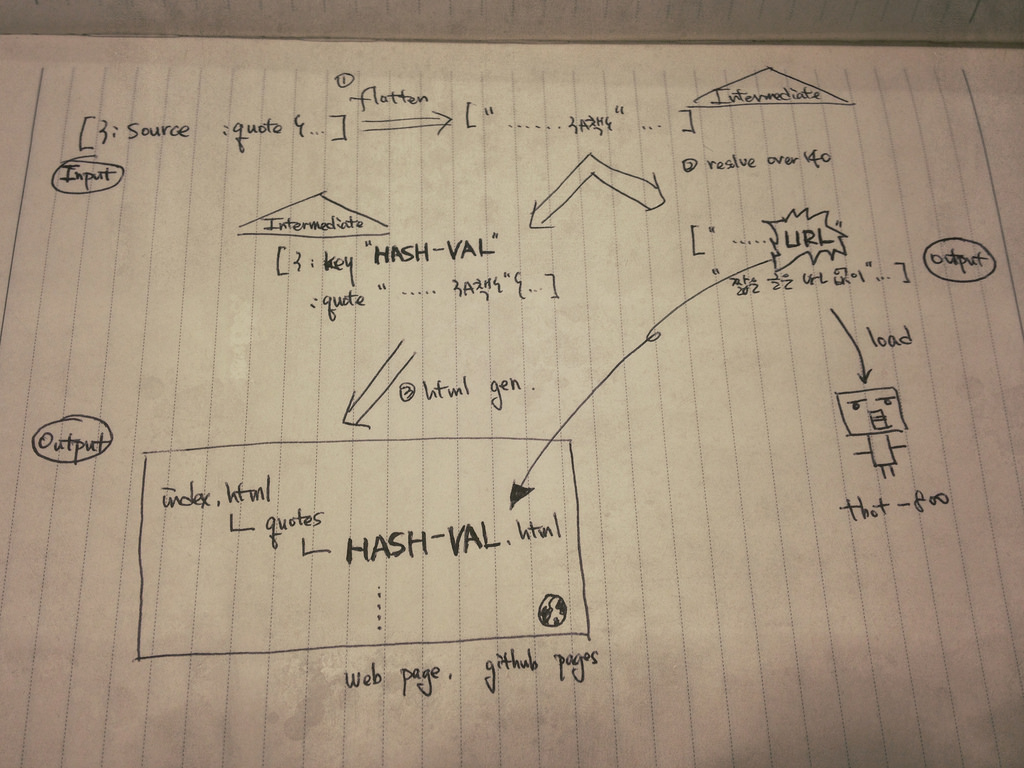 ①
flatten
[}: source :quote {...] [" ...... 책" ... ]
Intermediate
Input
② reslve over 140
Intermediate
[}: key "HASH-VAL"
:quote " ..... 책" {...]
[" ..... URL"
" 짧은 글은 URL 없이" ...]
Output
load
③ html gen.
Output
index.html
└ quotes
└ HASH-VAL.html
tbot-800
web page. github pages